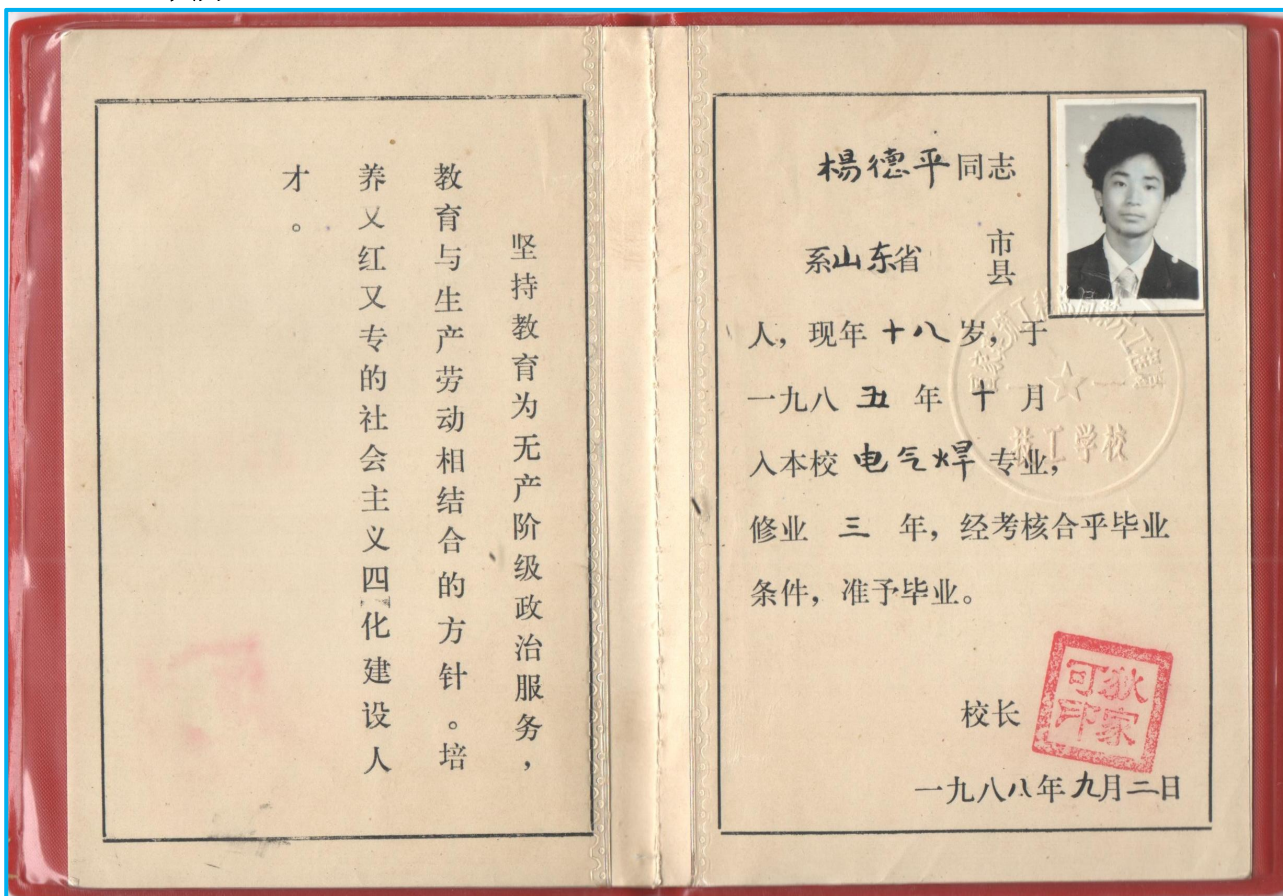 坚持教育为无产阶级政治服务，
教育与生产劳动相结合的方针。培
养又红又专的社会主义四化建设人
才。
楊德平同志
系山东省 市县
人，现年十八岁，于
一九八五年十月
入本校电气焊专业，
修业 三 年，经考核合乎毕业
条件，准予毕业。
技工学校
校长
狄家
可印
一九八八年九月二日